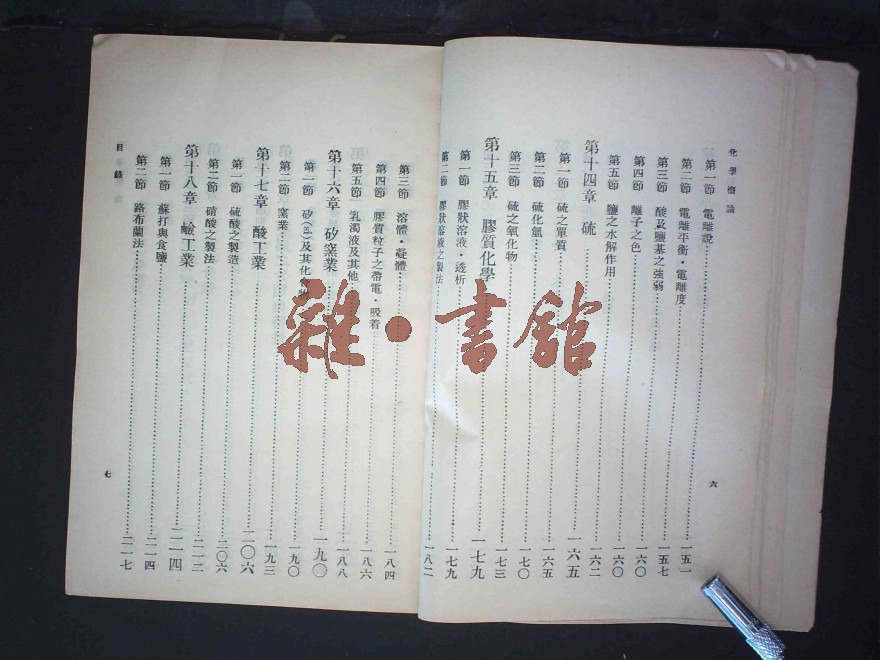 化學概論
第一節 電離說……一五一
第二節 電離平衡·電離度……一五七
第三節 酸及鹽基之強弱……一六〇
第四節 離子之色……一六〇
第五節 鹽之水解作用……一六二
第十四章 硫……一六五
第一節 硫之單質……一六五
第二節 硫化氫……一七〇
第三節 硫之氧化物……一七三
第十五章 膠質化學……一七九
第一節 膠狀溶液·透析……一七九
第二節 膠狀溶液之製法……一八二
六
第三節 溶體·凝體……一八四
第四節 膠質粒子之帶電·吸着……一八六
第五節 乳濁液及其他……一八八
第十六章 矽窯業……一九〇
第一節 矽(Si)及其化合物……一九〇
第二節 窯業……一九三
第十七章 酸工業……二〇六
第一節 硫酸之製造……二〇六
第二節 硝酸之製法……二一二
第十八章 鹼工業……二一四
第一節 蘇打與食鹽……二一四
第二節 路布蘭法……二一七
目錄
七
雜·書館